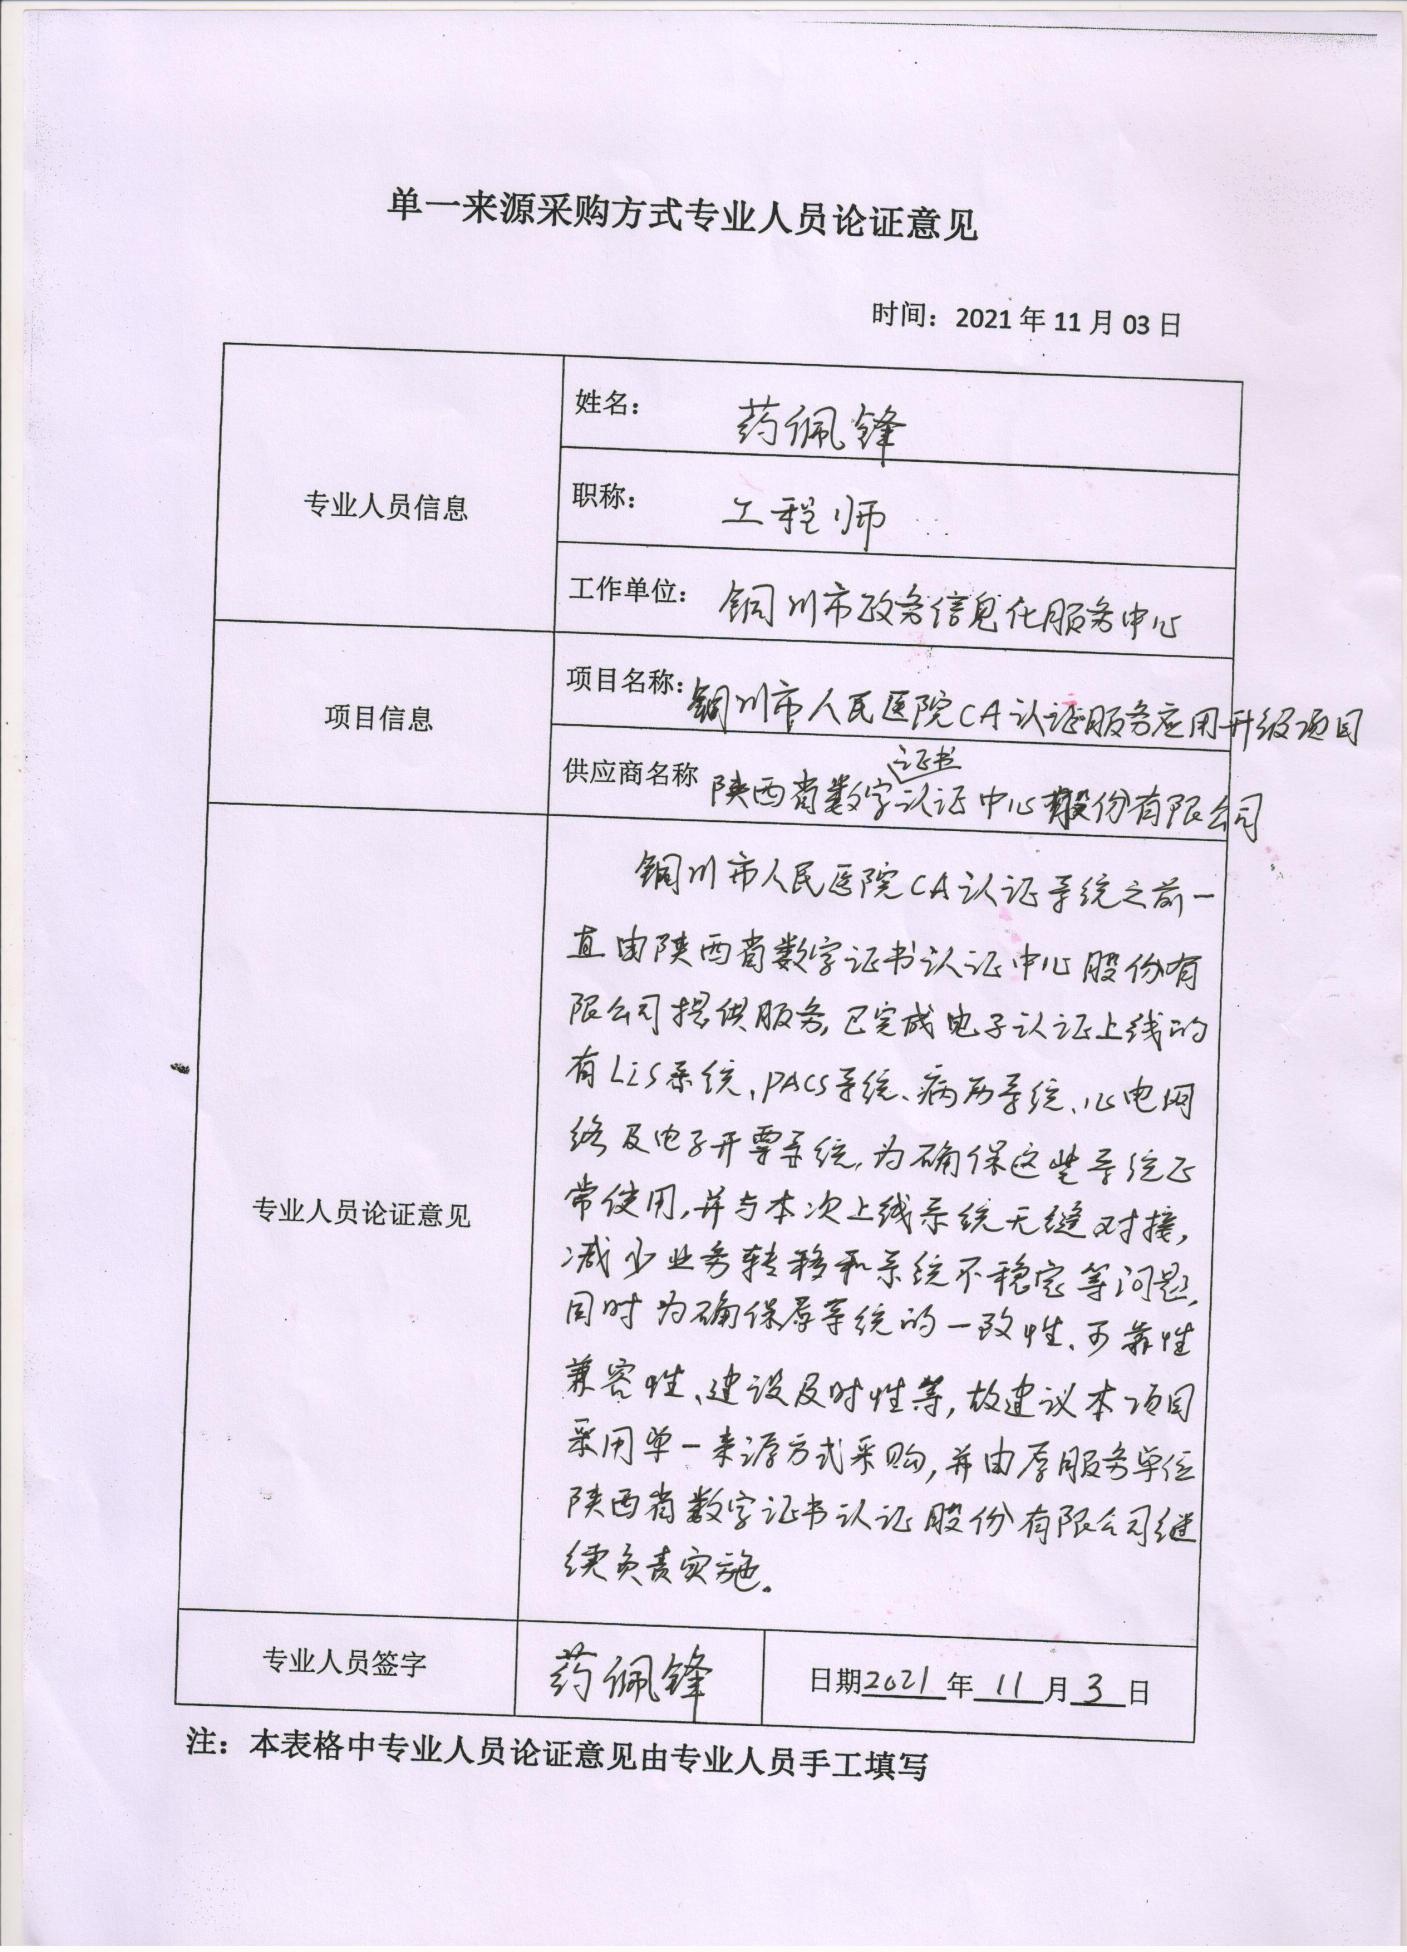 单一来源采购方式专业人员论证意见
时间：2021年11月03日
专业人员信息
姓名：药佩锋
职称：工程师
工作单位：铜川市政务信息化服务中心
项目信息
项目名称：铜川市人民医院CA认证服务应用升级项目
供应商名称 陕西省数字证书认证中心股份有限公司
专业人员论证意见
铜川市人民医院CA认证系统之前一
直由陕西省数字证书认证中心股份有
限公司提供服务,已完成电子认证上线的
有LiS系统、PACS系统、病历系统、心电网
络及电子开票系统,为确保这些系统正
常使用,并与本次上线系统无缝对接,
减少业务转移和系统不稳定等问题,
同时为确保原系统的一致性、可靠性
兼容性、建设及时性等,故建议本项目
采用单一来源方式采购,并由原服务单位
陕西省数字证书认证股份有限公司继
续负责实施。
专业人员签字
药佩锋
日期2021年11月3日
注：本表格中专业人员论证意见由专业人员手工填写